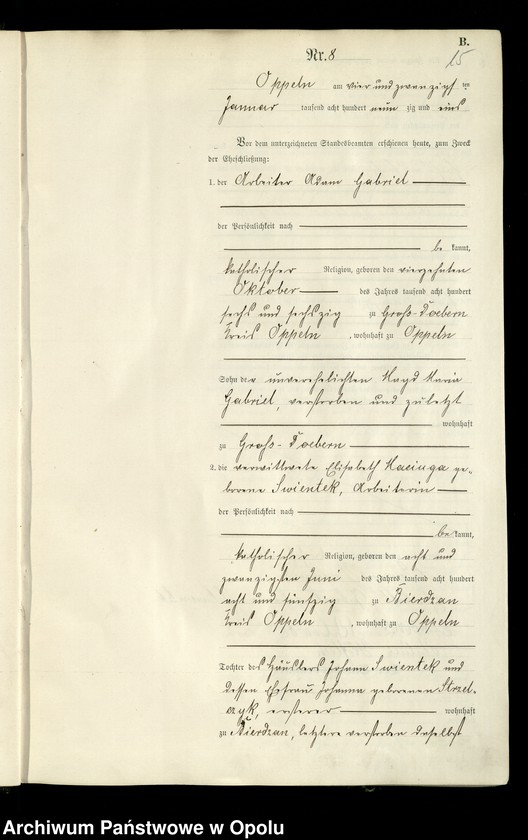 B.
15
Nr. 8
Oppeln am vier und zwanzigsten
Januar tausend acht hundert neun zig und eins
Vor dem unterzeichneten Standesbeamten erschienen heute, zum Zweck
der Eheschließung:
1. der Arbeiter Adam Gabriel
der Persönlichkeit nach
be kannt,
katholischer Religion, geboren den vierzehnten
Oktober des Jahres tausend acht hundert
sechs und sechszig zu Groß-Doebern
Kreis Oppeln, wohnhaft zu Oppeln
Sohn der unverehelichten Magd Maria
Gabriel, verstorben und zuletzt
wohnhaft
zu Groß-Doebern
2. die verwittwete Elisabeth Maciuga ge-
borene Swientek, Arbeiterin
der Persönlichkeit nach
be kannt,
katholischer Religion, geboren den acht und
zwanzigsten Juni des Jahres tausend acht hundert
acht und fünfzig zu Bierdzan
Kreis Oppeln, wohnhaft zu Oppeln
Tochter des Häuslers Johann Swientek und
dessen Ehefrau Johanna geborenen Strzel-
czyk, ersterer wohnhaft
zu Bierdzan, letztere verstorben daselbst
Archiwum Państwowe w Opolu